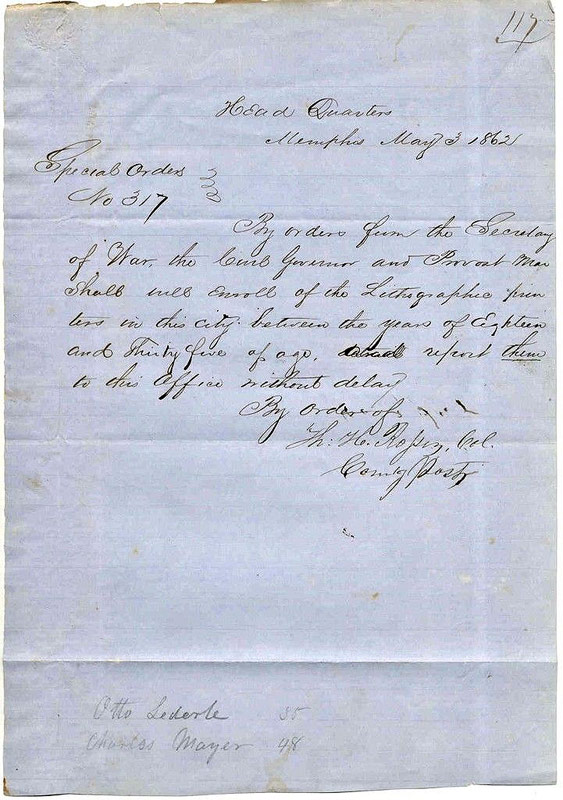 117
Head Quarters
Memphis May 3 1862
Special Orders
No 317
By orders from the Secretary
of War, the Civil Governor and Provost Mar
shall will enroll of the Lithographic prin
ters in this city between the years of Eighteen
and Thirty five of age, report them
to this Office without delay
By order of
Th: H. Rosser, Col.
Comdg Post
Otto Lederle 35
Charles Mayer 48